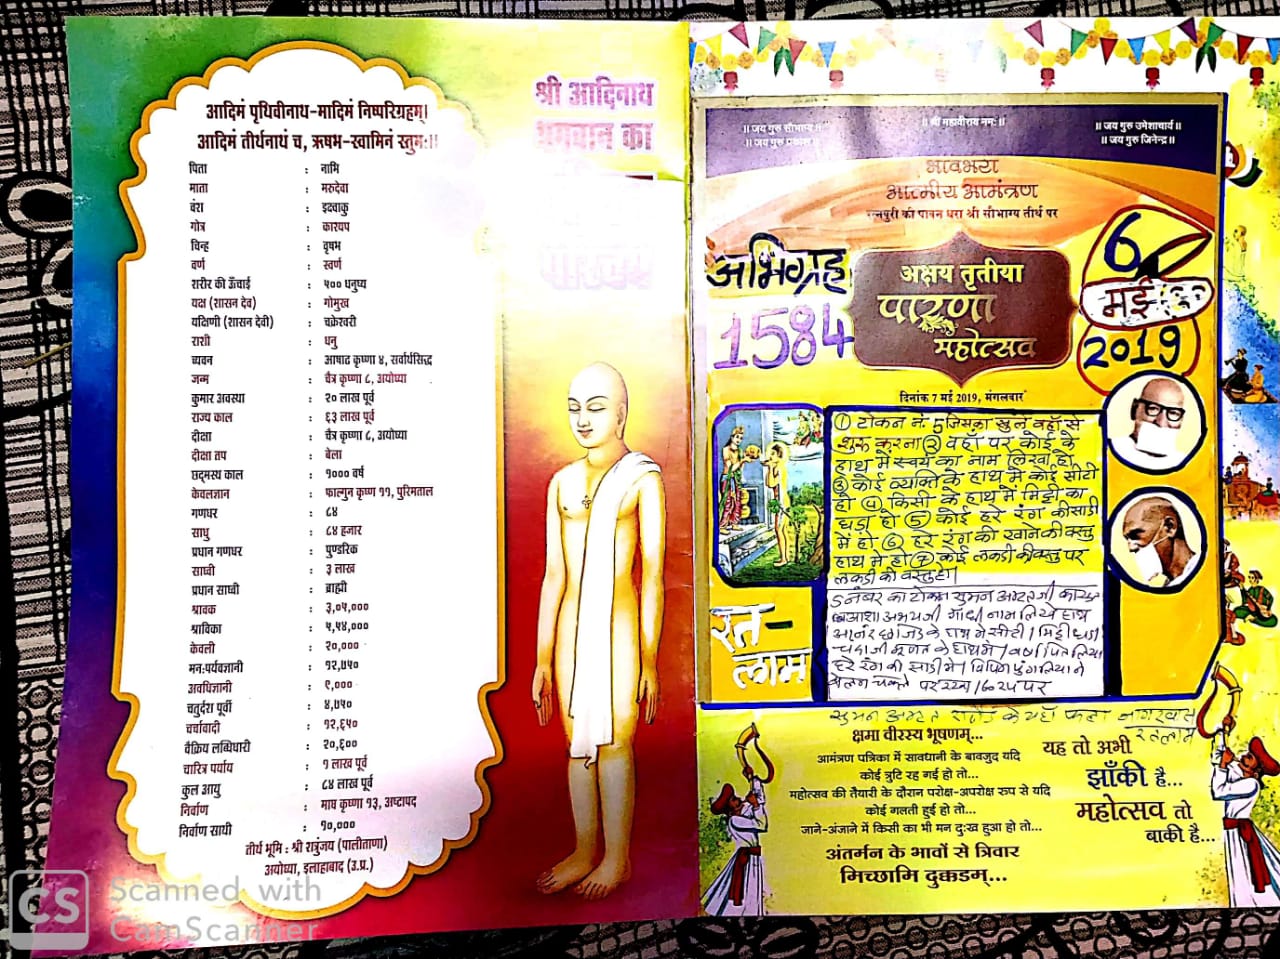 आदिमं पृथिवीनाथ-मादिमं निष्परिग्रहम्।
आदिमं तीर्थनाथं च, ऋषभ-स्वामिनं स्तुमः॥
पिता : नाभि
माता : मरुदेवा
वंश : इक्ष्वाकु
गोत्र : काश्यप
चिन्ह : वृषभ
वर्ण : स्वर्ण
शरीर की ऊँचाई : ५०० धनुष्य
यक्ष (शासन देव) : गोमुख
यक्षिणी (शासन देवी) : चक्रेश्वरी
राशी : धनु
च्यवन : आषाढ कृष्णा ४, सर्वार्थसिद्ध
जन्म : चैत्र कृष्णा ८, अयोध्या
कुमार अवस्था : २० लाख पूर्व
राज्य काल : ६३ लाख पूर्व
दीक्षा : चैत्र कृष्णा ८, अयोध्या
दीक्षा तप : बेला
छद्मस्थ काल : १००० वर्ष
केवलज्ञान : फाल्गुन कृष्ण ११, पुरिमताल
गणधर : ८४
साधु : ८४ हजार
प्रधान गणधर : पुण्डरिक
साध्वी : ३ लाख
प्रधान साध्वी : ब्राह्मी
श्रावक : ३,०५,०००
श्राविका : ५,५४,०००
केवली : २०,०००
मन:पर्यवज्ञानी : १२,७५०
अवधिज्ञानी : ९,०००
चतुर्दश पूर्वी : ४,७५०
चर्चावादी : १२,६५०
वैक्रिय लब्धिधारी : २०,६००
चारित्र पर्याय : १ लाख पूर्व
कुल आयु : ८४ लाख पूर्व
निर्वाण : माघ कृष्णा १३, अष्टापद
निर्वाण साथी : १०,०००
तीर्थ भूमि : श्री शत्रुंजय (पालीताणा)
अयोध्या, इलाहाबाद (उ.प्र.)
श्री आदिनाथ
भगवान का
॥ जय गुरु सौभाग्य ॥
॥ जय गुरु प्रकाश ॥
॥ श्री महावीराय नमः ॥
॥ जय गुरु उमेशाचार्य ॥
॥ जय गुरु जिनेन्द्र ॥
भावभरा
आत्मीय आमंत्रण
रत्नपुरी की पावन धरा श्री सौभाग्य तीर्थ पर
अभिग्रह
1584
अक्षय तृतीया
पारणा
महोत्सव
6
मई
2019
दिनांक 7 मई 2019, मंगलवार
① टोकन नं. 5 जिसका खुले वहाँ से
शुरू करना ② वहाँ पर कोई के
हाथ में स्वयं का नाम लिखा हो
③ कोई व्यक्ति के हाथ में कोई सीटी
हो ④ किसी के हाथ में मिट्टी का
घड़ा हो ⑤ कोई हरे रंग की साड़ी
में हो ⑥ हरे रंग की खाने की वस्तु
हाथ मे हो ⑦ कोई लकड़ी की वस्तु पर
लकड़ी की वस्तु हो।
5 नंबर का टोकन सुमन
आशा अभयजी गांधी नाम लिखे हाथ
के हाथ मे सीटी। मिट्टी घड़ा
के हाथ मे।
हरे रंग की साड़ी मे।
पर रखा
रत-
लाम
सुमन के यहाँ
रतलाम
क्षमा वीरस्य भूषणम्...
आमंत्रण पत्रिका में सावधानी के बावजुद यदि
कोई त्रुटि रह गई हो तो...
महोत्सव की तैयारी के दौरान परोक्ष-अपरोक्ष रुप से यदि
कोई गलती हुई हो तो...
जाने-अंजाने में किसी का भी मन दु:ख हुआ हो तो...
अंतर्मन के भावों से त्रिवार
मिच्छामि दुक्कडम्...
यह तो अभी
झाँकी है...
महोत्सव तो
बाकी है...
CS Scanned with
CamScanner